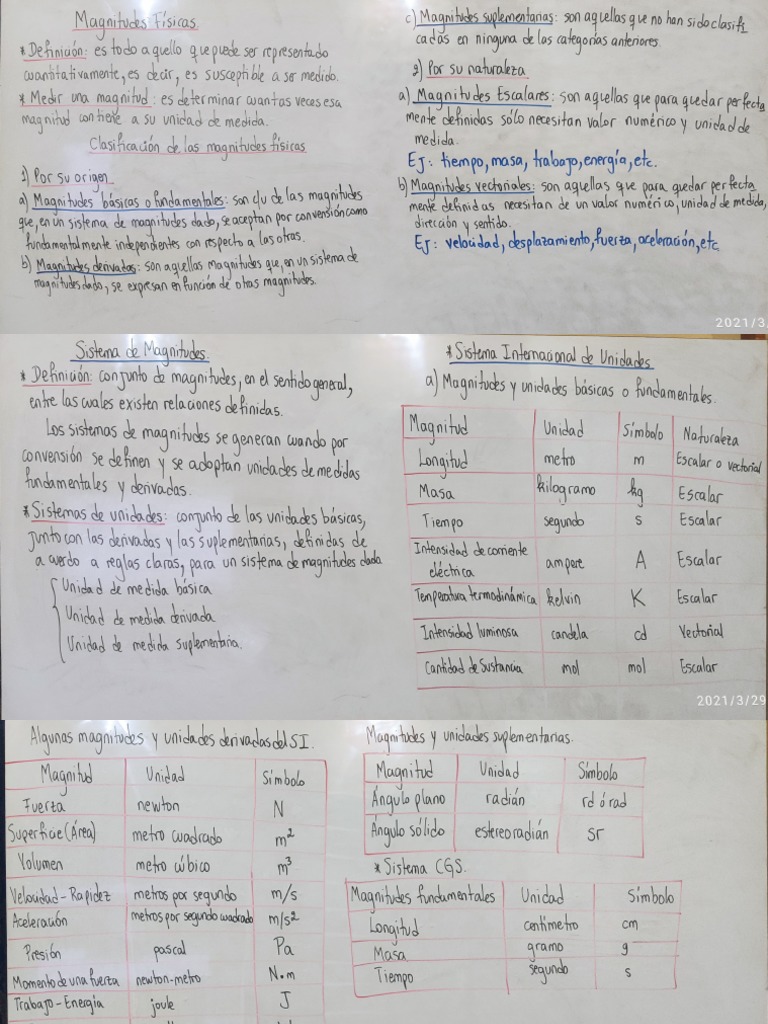 Magnitudes Físicas.
* Definición: es todo aquello que puede ser representado
cuantitativamente, es decir, es susceptible a ser medido.
* Medir una magnitud: es determinar cuantas veces esa
magnitud contiene a su unidad de medida.
Clasificación de las magnitudes físicas
1) Por su origen.
a) Magnitudes básicas o fundamentales: son c/u de las magnitudes
que, en un sistema de magnitudes dado, se aceptan por convención como
fundamentalmente independientes con respecto a las otras.
b) Magnitudes derivadas: son aquellas magnitudes que, en un sistema de
magnitudes dado, se expresan en función de otras magnitudes.
c) Magnitudes suplementarias: son aquellas que no han sido clasifi
cadas en ninguna de las categorías anteriores.
2) Por su naturaleza
a) Magnitudes Escalares: son aquellas que para quedar perfecta
mente definidas sólo necesitan valor numérico y unidad de
medida.
Ej: tiempo, masa, trabajo, energía, etc.
b) Magnitudes vectoriales: son aquellas que para quedar perfecta
mente definidas necesitan de un valor numérico, unidad de medida,
dirección y sentido.
Ej: velocidad, desplazamiento, fuerza, aceleración, etc.
2021/3
Sistema de Magnitudes.
* Definición: conjunto de magnitudes, en el sentido general,
entre las cuales existen relaciones definidas.
Los sistemas de magnitudes se generan cuando por
convención se definen y se adoptan unidades de medidas
fundamentales y derivadas.
* Sistemas de unidades: conjunto de las unidades básicas,
junto con las derivadas y las suplementarias, definidas de
acuerdo a reglas claras, para un sistema de magnitudes dado
Unidad de medida básica
Unidad de medida derivada
Unidad de medida suplementaria.
* Sistema Internacional de Unidades
a) Magnitudes y unidades básicas o fundamentales.
Magnitud Unidad Símbolo Naturaleza
Longitud metro m Escalar o vectorial
Masa kilogramo kg Escalar
Tiempo segundo s Escalar
Intensidad de corriente
eléctrica ampere A Escalar
Temperatura termodinámica kelvin K Escalar
Intensidad luminosa candela cd Vectorial
Cantidad de Sustancia mol mol Escalar
2021/3/29
Algunas magnitudes y unidades derivadas del SI.
Magnitud Unidad Símbolo
Fuerza newton N
Superficie (Área) metro cuadrado m²
Volumen metro cúbico m³
Velocidad - Rapidez metros por segundo m/s
Aceleración metros por segundo cuadrado m/s²
Presión pascal Pa
Momento de una fuerza newton-metro N·m
Trabajo - Energía joule J
Magnitudes y unidades suplementarias.
Magnitud Unidad Símbolo
Ángulo plano radián rd ó rad
Ángulo sólido estereoradián sr
* Sistema CGS.
Magnitudes fundamentales Unidad Símbolo
Longitud centímetro cm
Masa gramo g
Tiempo segundo s